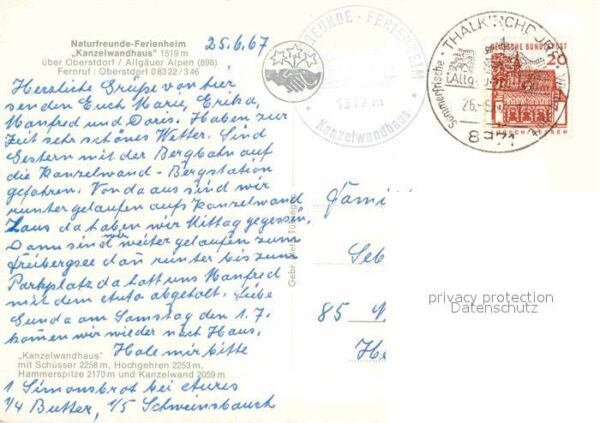 Naturfreunde-Ferienheim
"Kanzelwandhaus" 1519 m
über Oberstdorf / Allgäuer Alpen (898)
Fernruf: Oberstdorf 08322/346
25.6.67
Herzliche Grüße von hier
senden Euch Marie, Erika,
Manfred und Doris. Haben zur
Zeit sehr schönes Wetter. Sind
Gestern mit der Bergbahn auf
die Kanzelwand - Bergstation
gefahren. Von da aus sind wir
runter gelaufen aufs Kanzelwand
Haus da haben wir Mittag gegessen.
Dann sind wir weiter gelaufen zum
Freibergsee dan runter bis zum
Parkplatz da hatt uns Manfred
mit dem Auto abgeholt. Liebe
Gunda am Samstag den 1.7.
komen wir wieder nach Haus.
Hole mir bitte
"Kanzelwandhaus"
mit Schüsser 2258 m, Hochgehren 2253 m,
Hammerspitze 2170 m und Kanzelwand 2059 m
1 Simonsbrot bei
1/4 Butter, 1/5 Schweinsbauch
Gebr. Metz, Tübingen
FREUNDE - FERIENHEIM
1519 m
Kanzelwandhaus
Sommerfrische · THALKIRCHDORF
(Allg
26.-6
8971
DEUTSCHE BUNDESPOST
20
LORSCH/HESSEN
Famil
Seb
85 N
He
privacy protection
Datenschutz